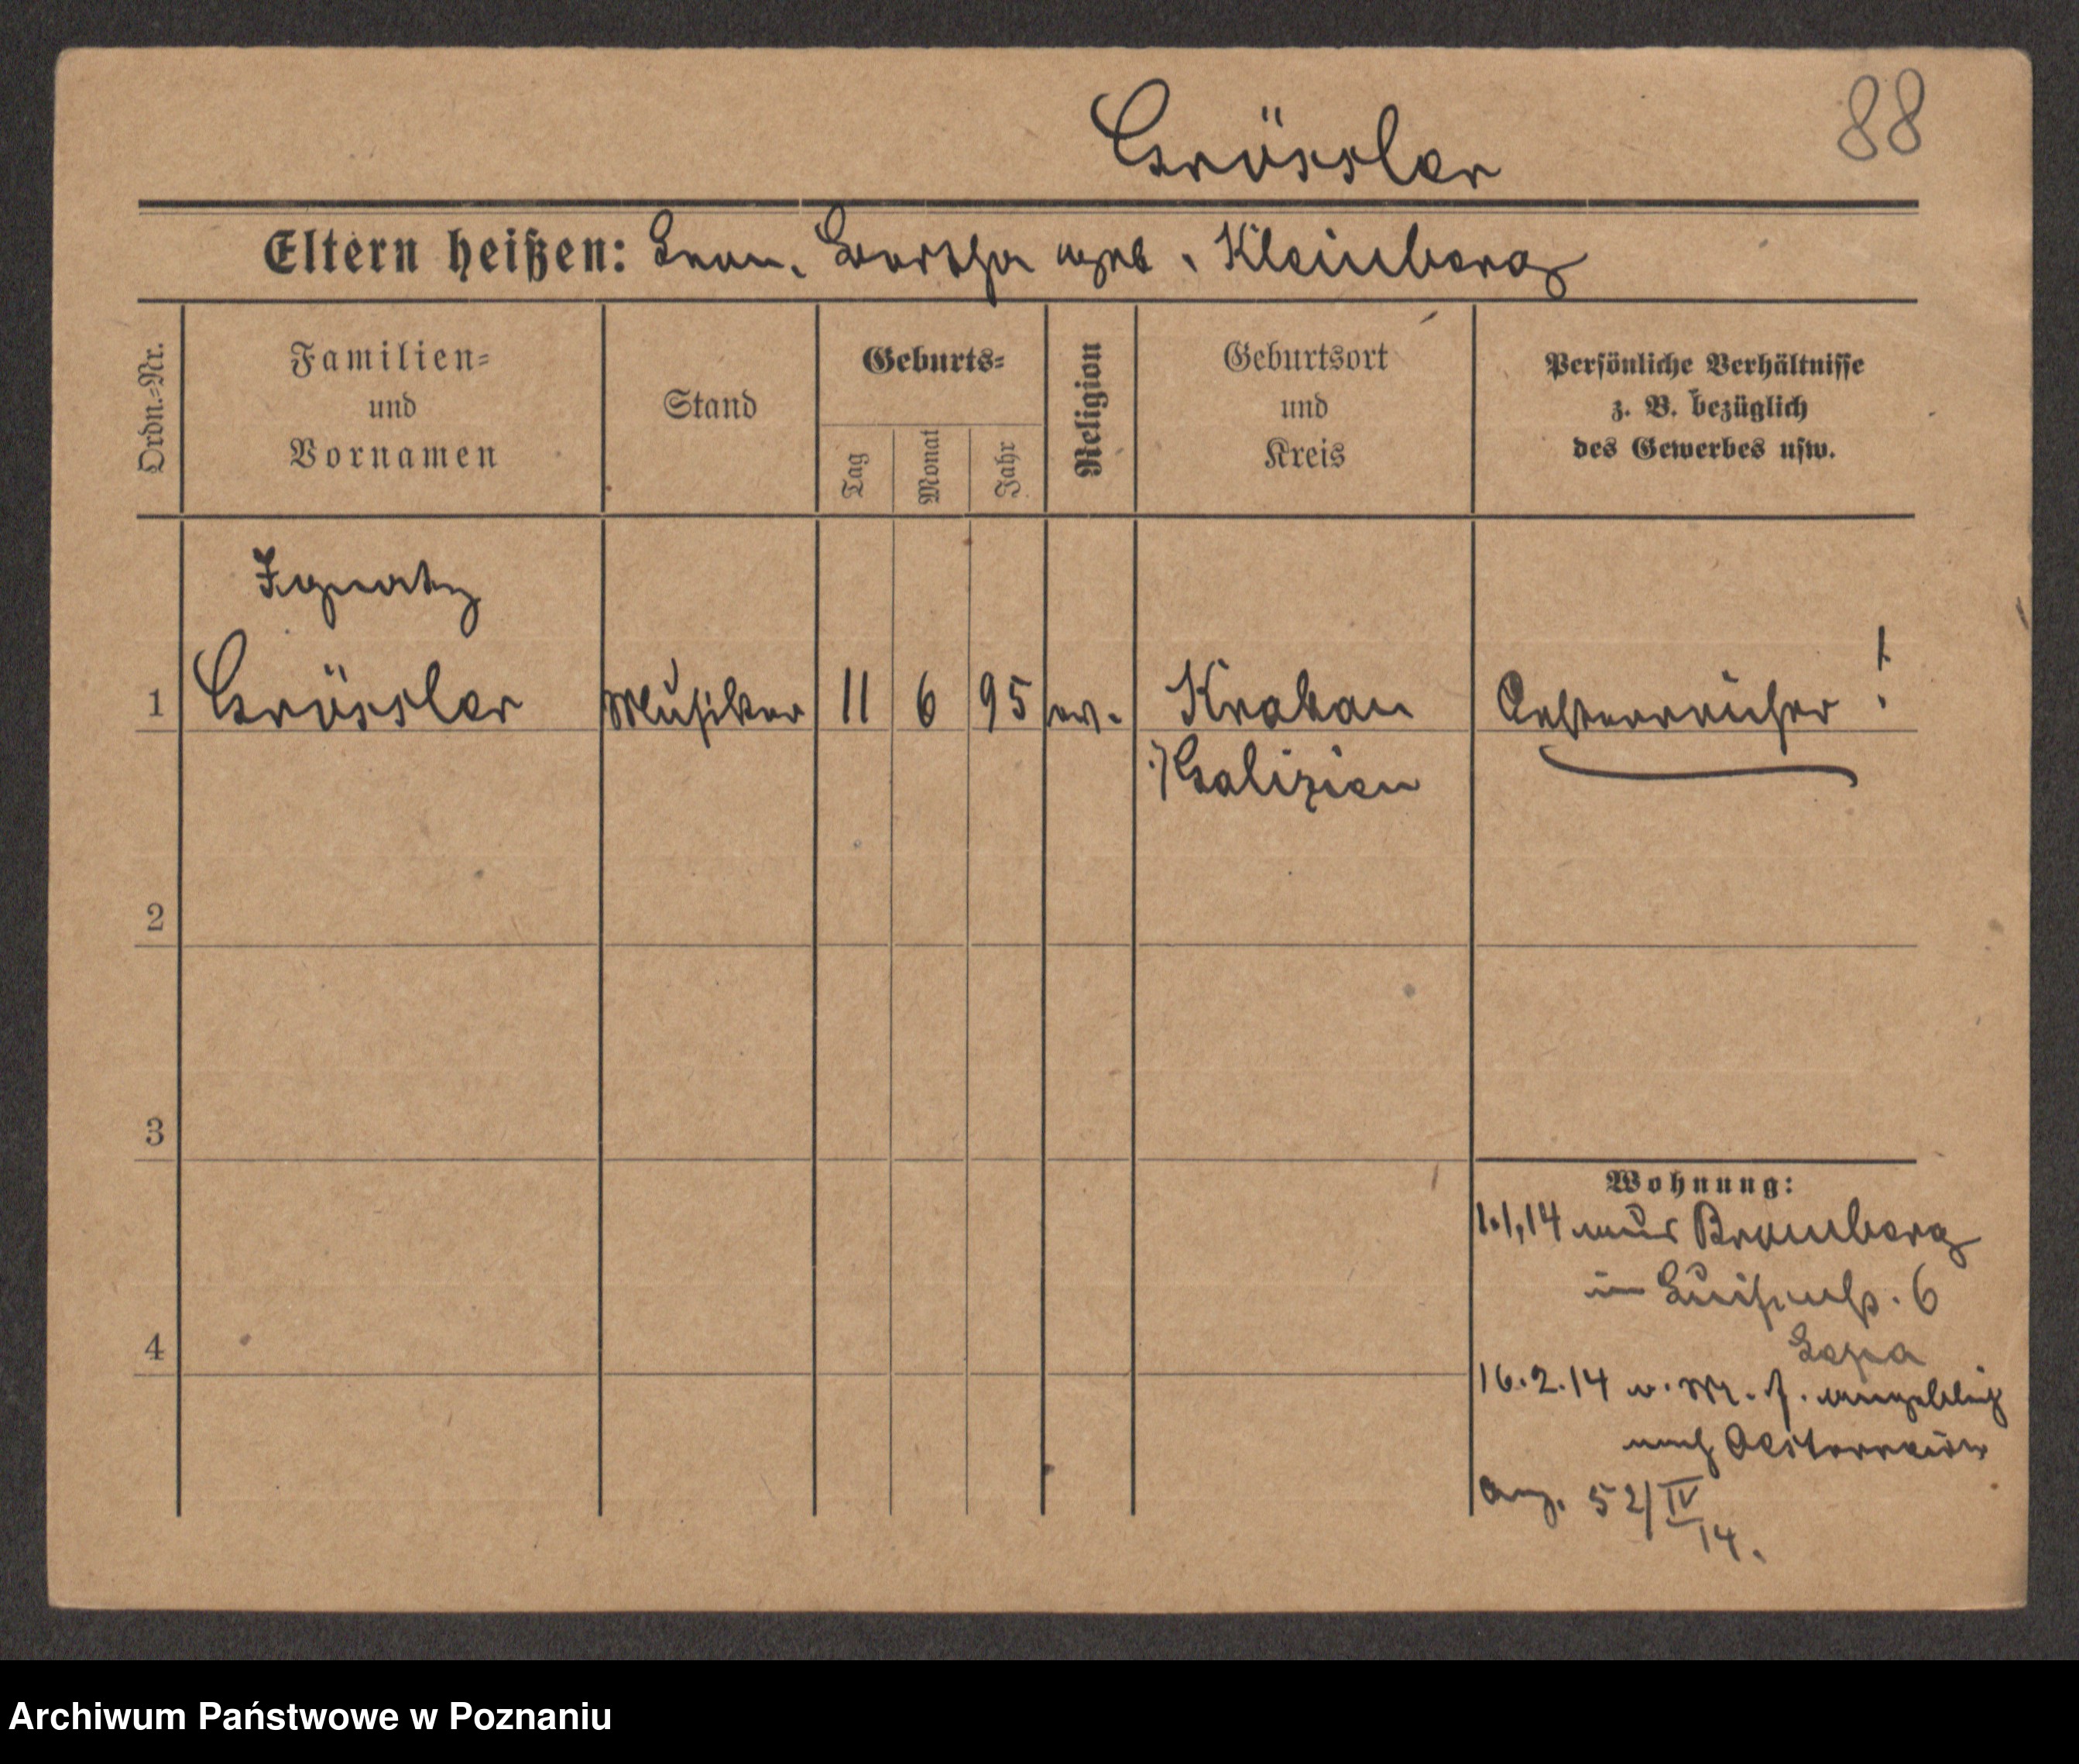 88
Grössler
Eltern heißen: Leon. Bertha geb. Kleinberg
Ordn.-Nr.
Familien-
und
Vornamen
Stand
Geburts-
Tag
Monat
Jahr
Religion
Geburtsort
und
Kreis
Persönliche Verhältnisse
z. B. bezüglich
des Gewerbes usw.
Ignatz
1 Grössler Musiker 11 6 95 ev. Krakau Oesterreicher !
Galizien
2
3
4
Wohnung:
1.1.14 aus Bromberg
in Luisenstr. 6
16.2.14 v. angeblich
nach Oesterreich
Ang. 52/IV
14.
Archiwum Państwowe w Poznaniu